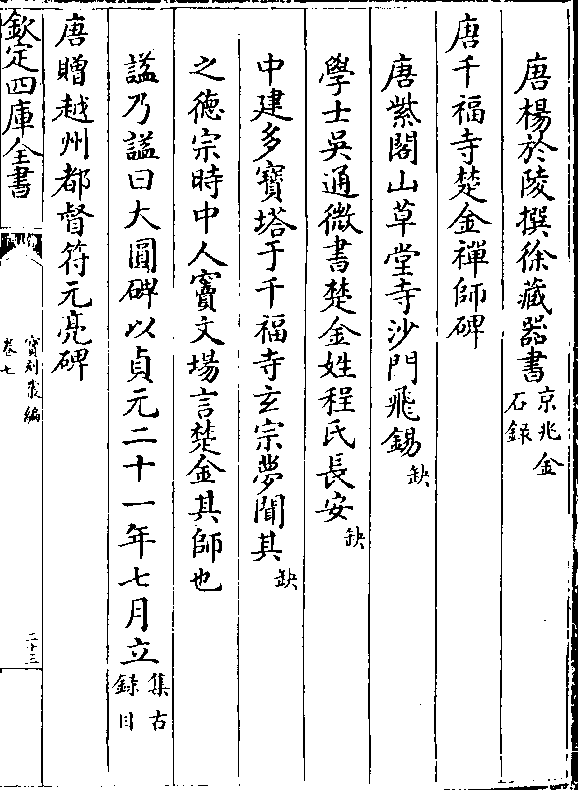 唐楊於陵撰徐藏器書京兆金石錄
唐千福寺楚金禪師碑
唐紫閣山草堂寺沙門飛錫缺
學士吳通微書楚金姓程氏長安缺
中建多寶塔于千福寺玄宗夢聞其缺
之德宗時中人竇文場言楚金其師也
諡乃諡曰大圓碑以貞元二十一年七月立集古錄目
唐贈越州都督符元亮碑
欽定四庫全書
寶刻叢編
卷七
二十三